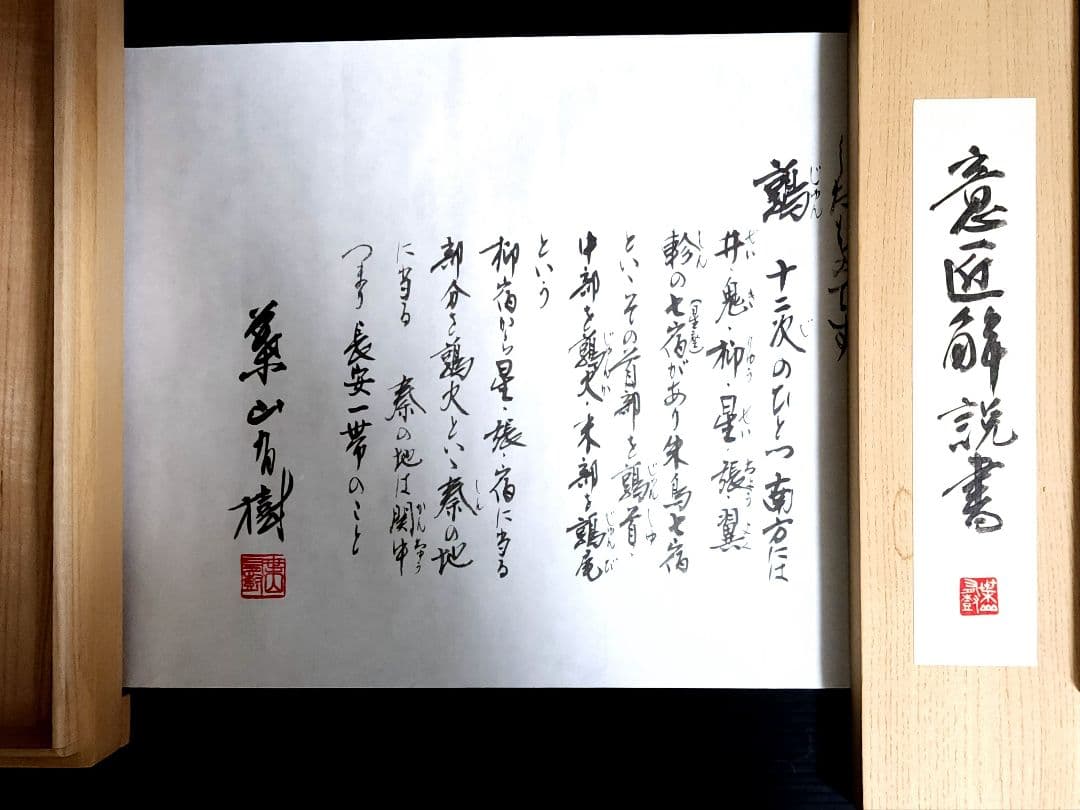 意匠解説書
したものです
鶉 じゅん
十二次のひとつ 南方には
井・鬼・柳・星・張・翼
軫の七宿(星座)があり朱鳥七宿
といいその首部を鶉首・
中部を鶉火 末部を鶉尾
という
柳宿から星・張・宿に当る
部分を鶉火といい秦の地
に当る 秦の地は関中
つまり長安一帯のこと
葉山有樹